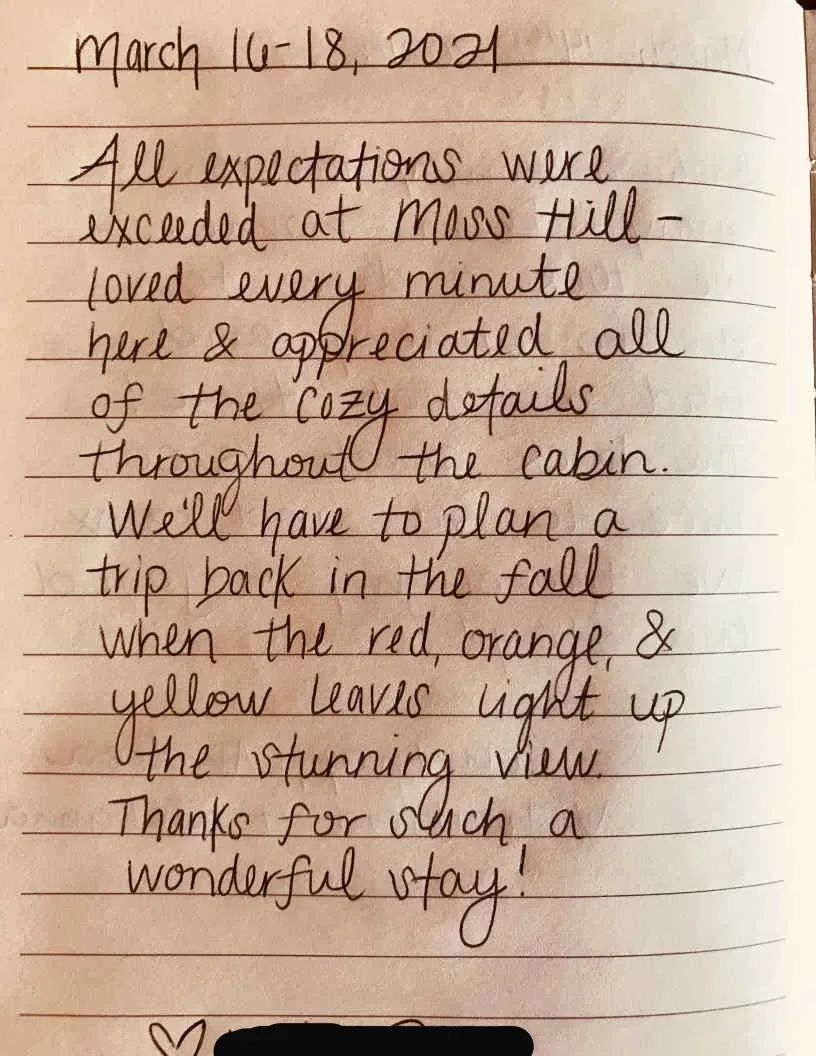 March 16-18, 2021
All expectations were
exceeded at Moss Hill -
loved every minute
here & appreciated all
of the cozy details
throughout the cabin.
We'll have to plan a
trip back in the fall
when the red, orange, &
yellow leaves light up
the stunning view.
Thanks for such a
wonderful stay!